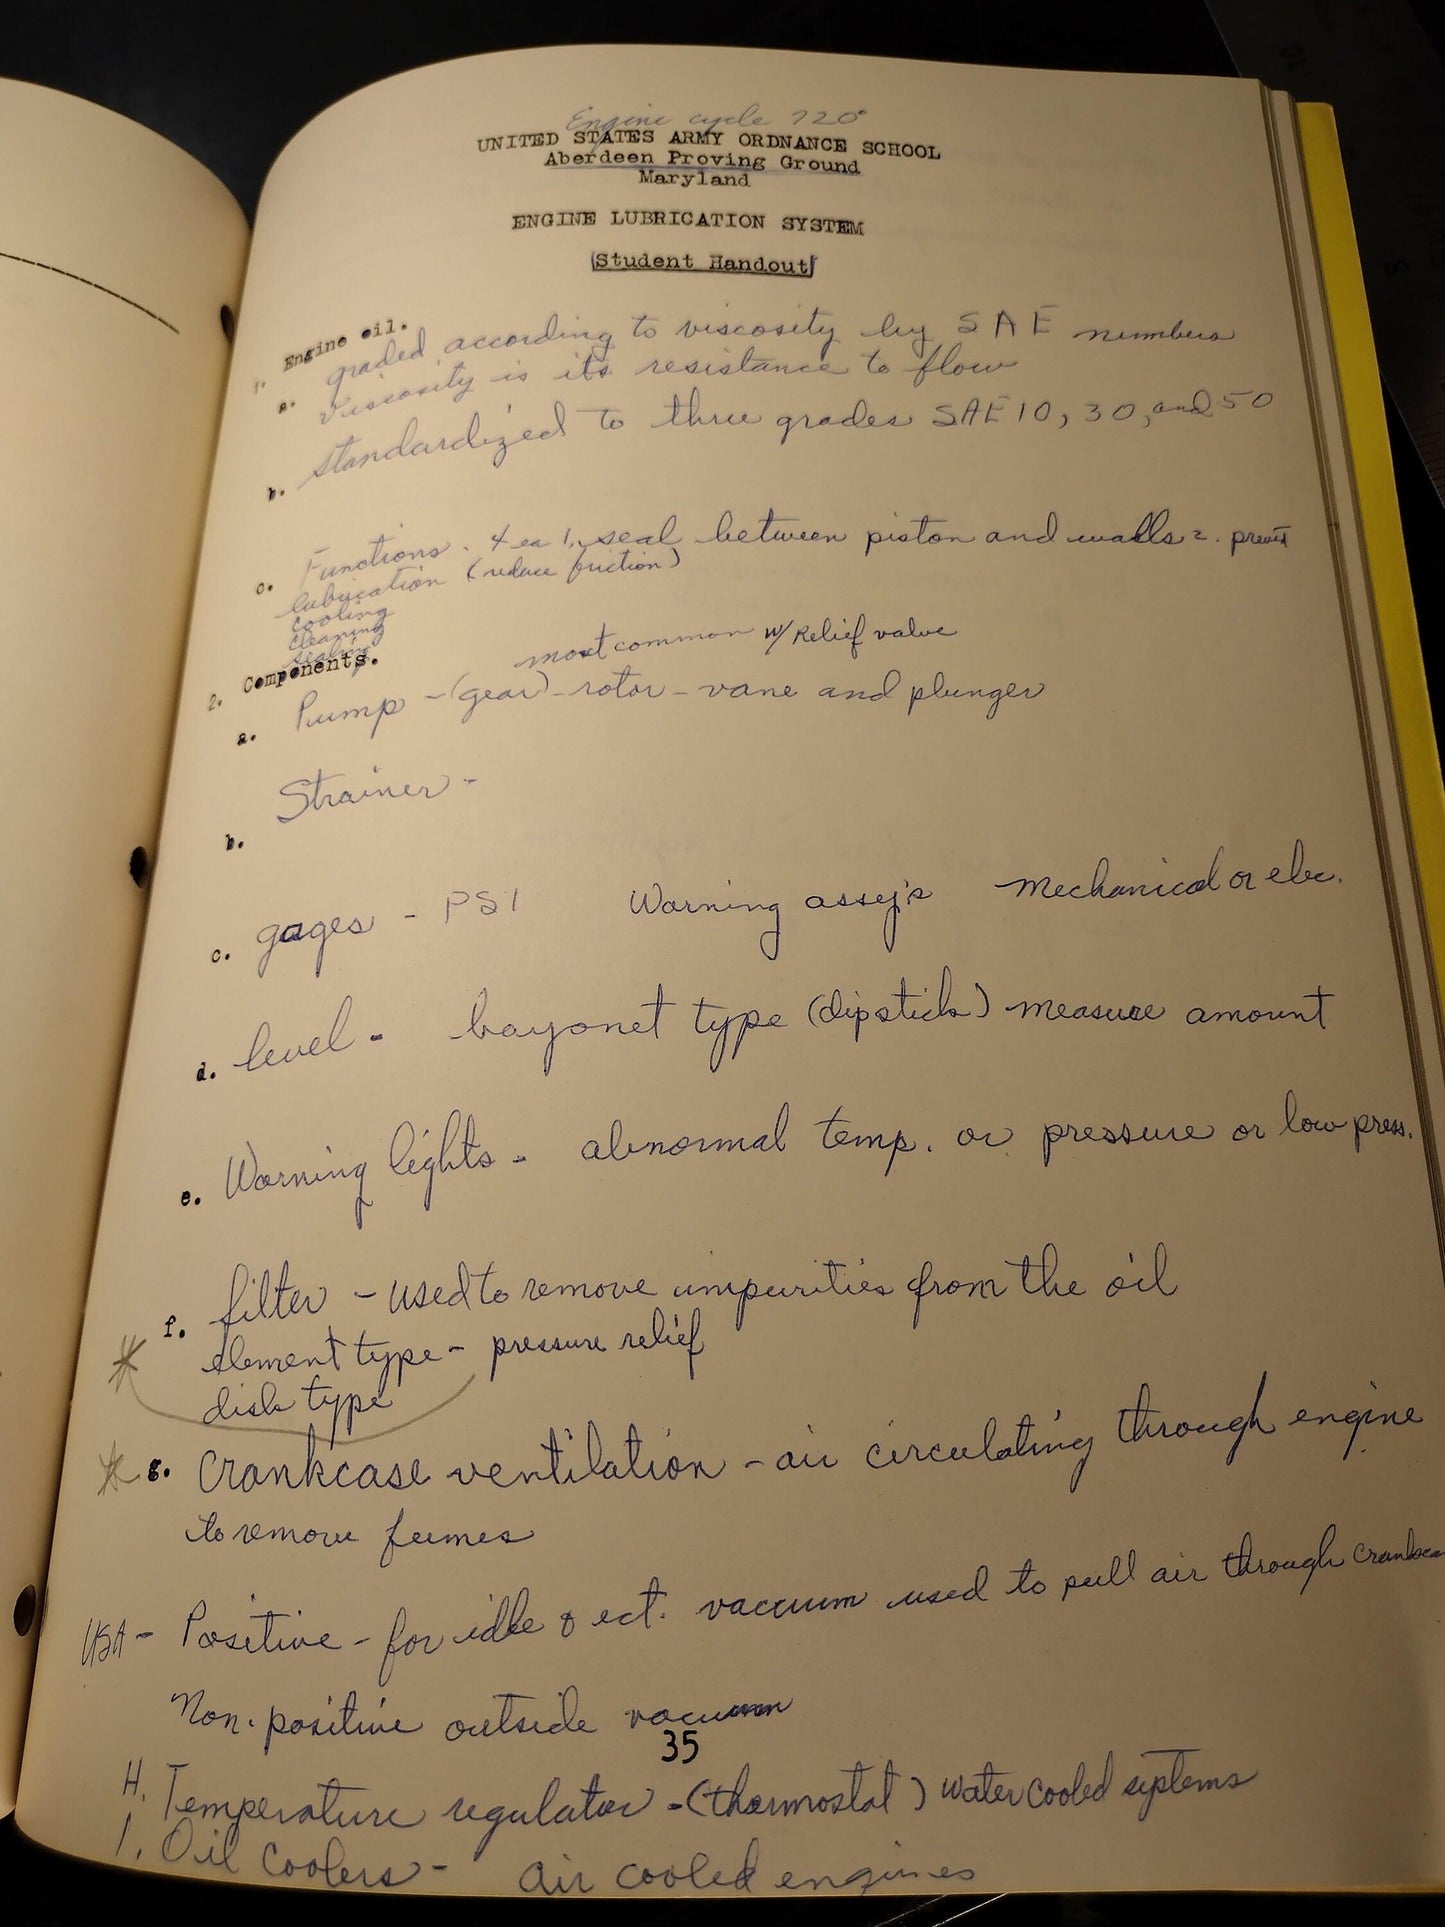 Engine cycle 720°
UNITED STATES ARMY ORDNANCE SCHOOL
Aberdeen Proving Ground
Maryland
ENGINE LUBRICATION SYSTEM
(Student Handout)
1. Engine oil.
a. graded according to viscosity by SAE numbers
Viscosity is its resistance to flow
b. standardized to three grades SAE 10, 30, and 50
c. Functions. 4 ea 1. seal between piston and walls 2.
lubrication (reduce friction)
cooling
cleaning
sealing
2. Components.
most common w/ Relief valve
a. Pump - (gear) - rotor - vane and plunger
b. Strainer -
c. gages - PSI Warning assy's mechanical or elec.
d. level - bayonet type (dipstick) measure amount
e. Warning lights - abnormal temp. or pressure or low press.
f. filter - used to remove impurities from the oil
element type - pressure relief
disk type
g. Crankcase ventilation - air circulating through engine
to remove fumes
USA - Positive - for idle & ect. vacuum used to pull air through
Non-positive outside vacuum
35
H. Temperature regulator - (thermostat) water cooled systems
I. Oil Coolers - air cooled engines